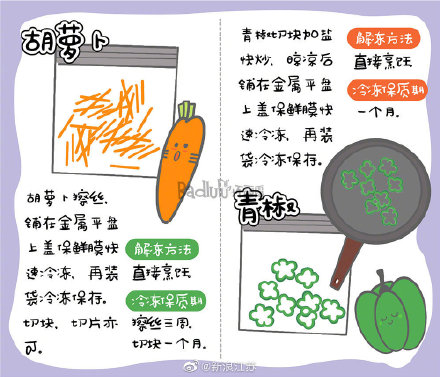 胡萝卜
胡萝卜擦丝、
铺在金属平盘
上盖保鲜膜快
速冷冻，再装
袋冷冻保存。
切块、切片亦
可。
解冻方法
直接烹饪
冷冻保质期
擦丝三周，
切块一个月。
青椒切块加盐
快炒，晾凉后
铺在金属平盘
上盖保鲜膜快
速冷冻，再装
袋冷冻保存。
解冻方法
直接烹饪
冷冻保质期
一个月。
青椒
@新浪江苏